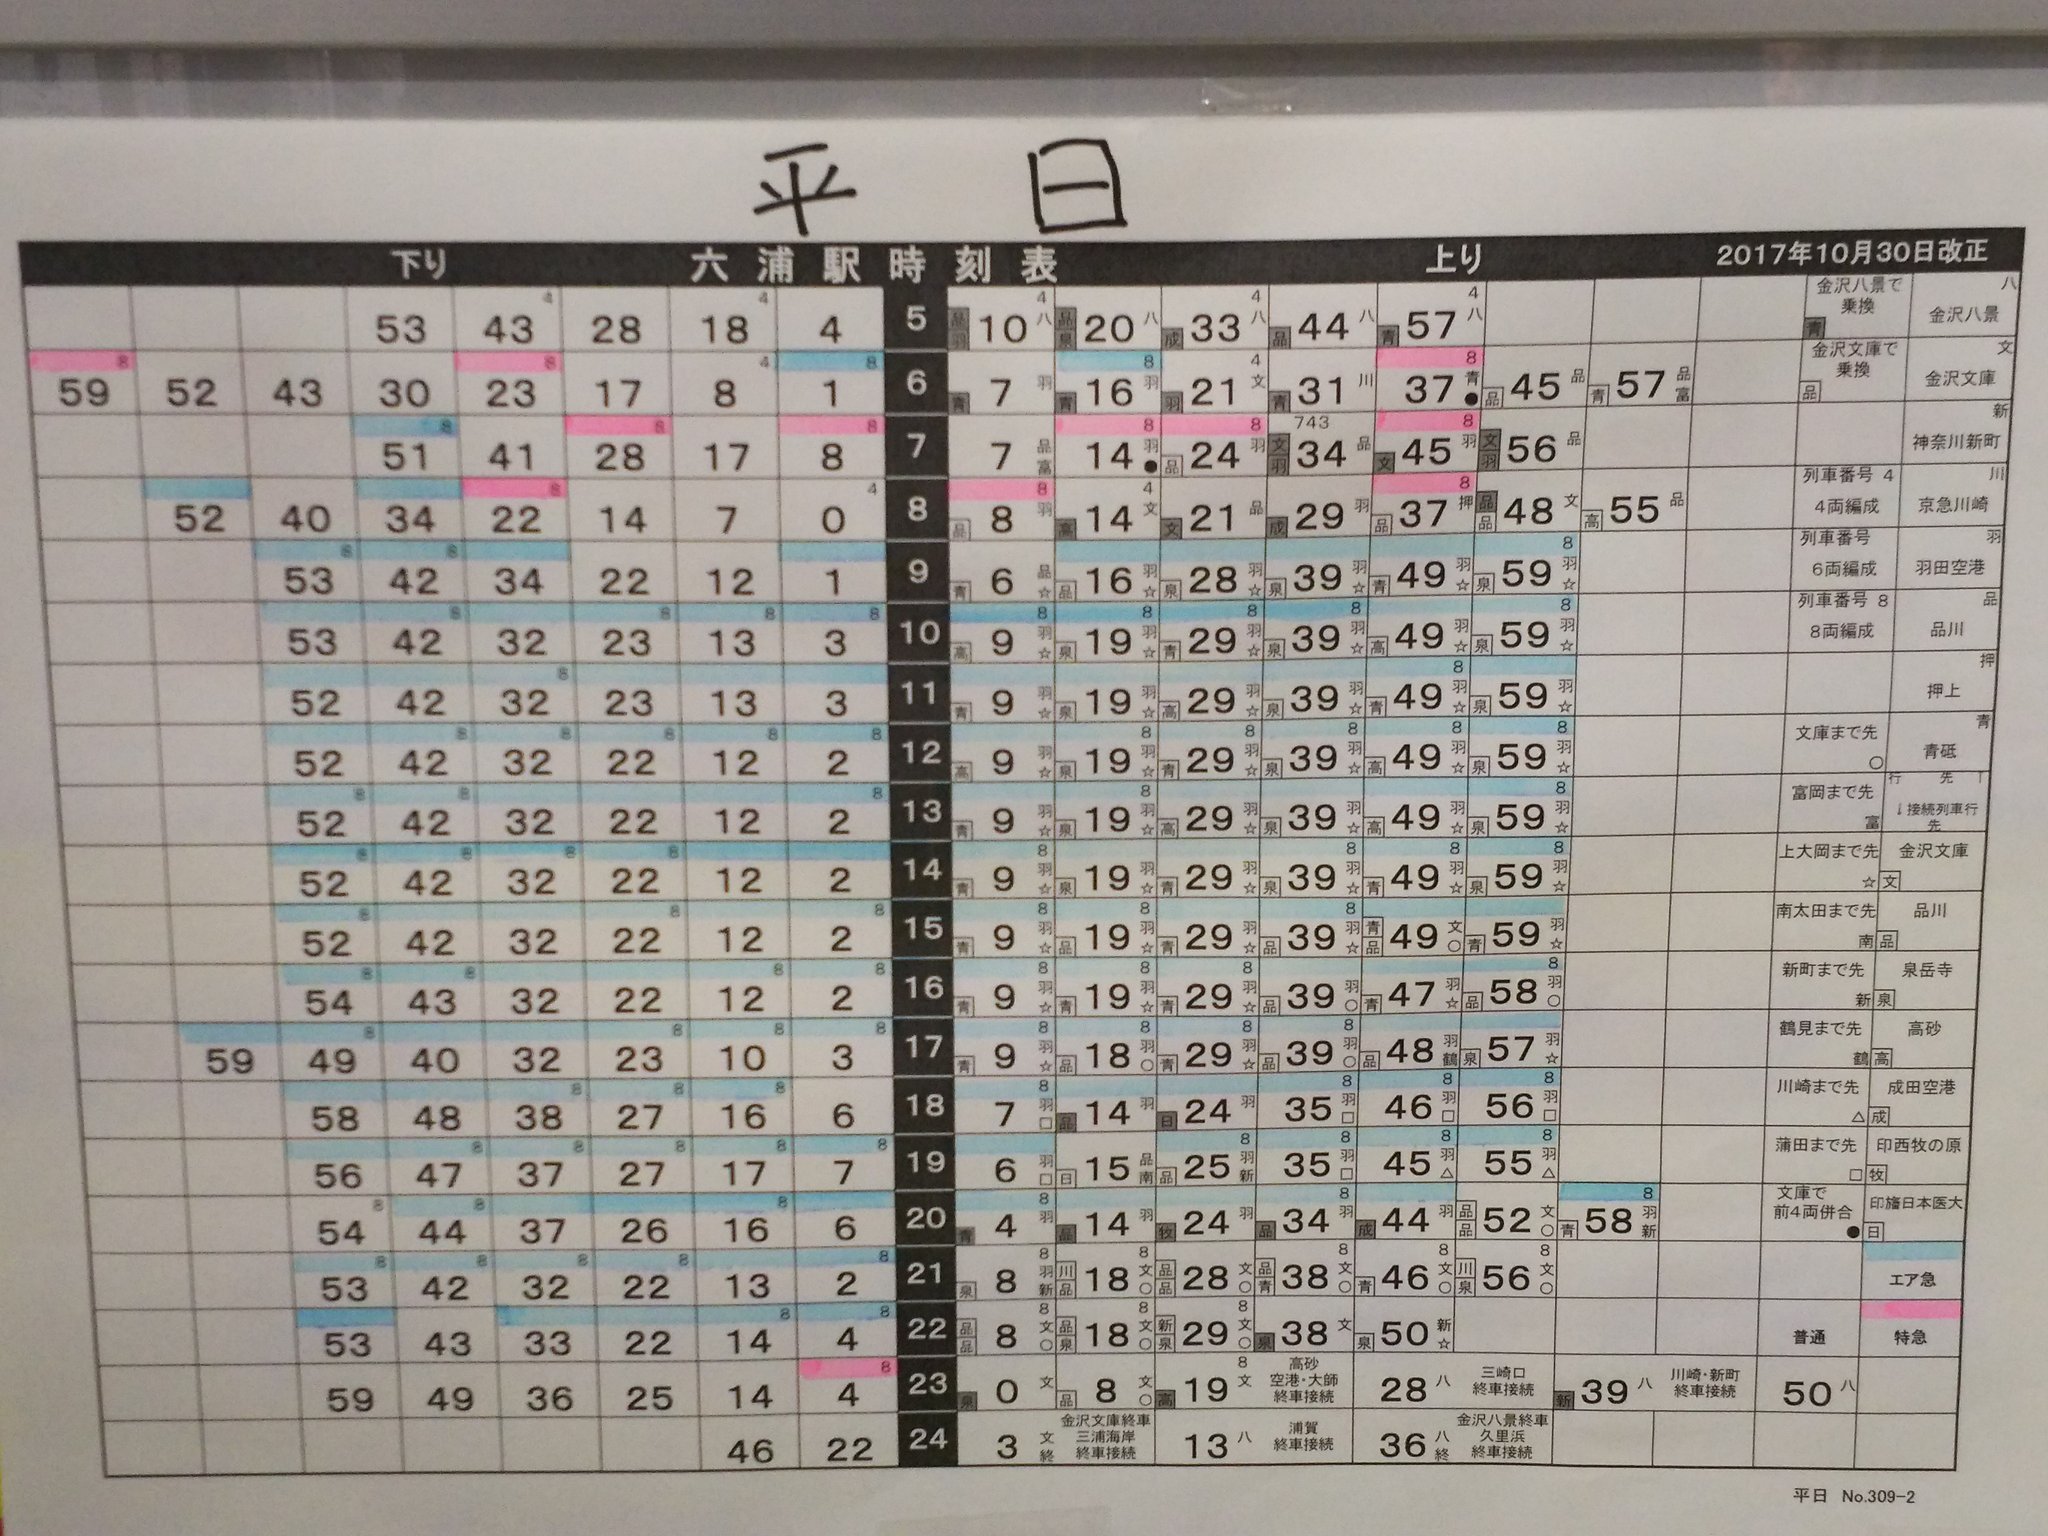 平日
下り 六浦駅時刻表 上り 2017年10月30日改正
53 43 4 28 18 4 4 5 品 羽 10 4 八 品 泉 20 八 成 33 4 八 品 44 八 青 57 4 八 金沢八景で乗換 青 八 金沢八景
59 8 52 43 30 23 8 17 8 4 1 8 6 青 7 羽 青 16 8 羽 羽 21 4 文 青 31 川 37 8 青 ● 品 45 品 青 57 品 富 金沢文庫で乗換 品 文 金沢文庫
51 8 41 28 8 17 8 8 7 7 品 富 14 8 羽 ● 品 24 8 羽 文 羽 34 743 品 文 45 8 羽 文 羽 56 品 新 神奈川新町
52 40 34 22 8 14 7 0 4 8 品 8 8 羽 高 14 4 文 文 21 品 成 29 羽 品 37 8 押 品 品 48 文 高 55 品 列車番号 4 4両編成 川 京急川崎
53 8 42 8 34 22 12 1 9 青 6 品 ☆ 品 16 羽 ☆ 泉 28 羽 ☆ 泉 39 羽 ☆ 青 49 羽 ☆ 泉 59 8 羽 ☆ 列車番号 6両編成 羽 羽田空港
53 42 8 32 23 8 13 8 3 8 10 高 9 8 羽 ☆ 泉 19 8 羽 ☆ 青 29 8 羽 ☆ 泉 39 8 羽 ☆ 高 49 羽 ☆ 泉 59 8 羽 ☆ 列車番号 8 8両編成 品 品川
52 42 32 8 23 13 3 11 青 9 羽 ☆ 泉 19 羽 ☆ 高 29 羽 ☆ 泉 39 羽 ☆ 青 49 8 羽 ☆ 泉 59 羽 ☆ 押 押上
52 42 8 32 8 22 8 12 8 2 8 12 高 9 羽 ☆ 泉 19 8 羽 ☆ 青 29 8 羽 ☆ 泉 39 8 羽 ☆ 高 49 8 羽 ☆ 泉 59 8 羽 ☆ 文庫まで先 ○ 青 青砥
52 8 42 8 32 22 12 2 8 13 青 9 羽 ☆ 泉 19 8 羽 ☆ 高 29 羽 ☆ 泉 39 羽 ☆ 高 49 羽 ☆ 泉 59 8 羽 ☆ 富岡まで先 富 行先↑ ↓接続列車行先
52 8 42 8 32 8 22 8 12 2 14 青 9 8 羽 ☆ 泉 19 羽 ☆ 青 29 羽 ☆ 泉 39 8 羽 ☆ 青 49 8 羽 ☆ 泉 59 8 羽 ☆ 上大岡まで先 ☆ 金沢文庫 文
52 8 42 32 22 8 12 2 8 15 青 9 8 羽 ☆ 品 19 8 羽 ☆ 青 29 8 羽 ☆ 品 39 8 羽 ☆ 青 品 49 文 ○ 青 59 羽 ☆ 南太田まで先 南 品川 品
54 8 43 8 32 22 12 8 2 8 16 青 9 8 羽 ☆ 青 19 8 羽 ☆ 青 29 8 羽 ☆ 品 39 羽 ○ 青 47 羽 ☆ 品 58 8 羽 ○ 新町まで先 新 泉岳寺 泉
59 49 8 40 32 23 8 10 8 3 8 17 青 9 8 羽 ☆ 品 18 8 羽 ○ 青 29 8 羽 ☆ 品 39 8 羽 ○ 品 48 羽 鶴 泉 57 羽 ☆ 鶴見まで先 鶴 高砂 高
58 48 38 8 27 8 16 8 6 18 7 8 羽 □ 品 14 羽 日 24 羽 35 8 羽 □ 46 8 羽 □ 56 8 羽 □ 川崎まで先 △ 成田空港 成
56 47 8 37 8 27 8 17 8 7 8 19 6 羽 □ 日 15 品 南 品 25 8 羽 新 35 8 羽 □ 45 8 羽 △ 55 8 羽 △ 蒲田まで先 □ 印西牧の原 牧
54 8 44 8 37 26 16 8 6 20 青 4 8 羽 品 14 羽 牧 24 羽 品 34 8 羽 成 44 羽 品 品 52 文 ○ 青 58 8 羽 新 文庫で前4両併合 ● 印旛日本医大 日
53 8 42 8 32 8 22 8 13 2 8 21 泉 8 8 羽 新 川 品 18 8 文 ○ 品 品 28 文 ○ 品 青 38 8 文 ○ 青 46 8 文 ○ 川 泉 56 8 文 ○ エア急
53 43 33 22 14 8 4 8 22 品 品 8 8 文 ○ 品 泉 18 8 文 ○ 新 泉 29 8 文 ○ 泉 38 文 泉 50 新 ☆ 普通 特急
59 49 36 25 14 4 8 23 泉 0 文 品 8 文 ○ 高 19 8 文 高砂 空港・大師 終車接続 28 八 三崎口 終車接続 新 39 八 川崎・新町 終車接続 50 八
46 22 24 3 文 終 金沢文庫終車 三浦海岸 終車接続 13 八 浦賀 終車接続 36 八 終 金沢八景終車 久里浜 終車接続
平日 No.309-2